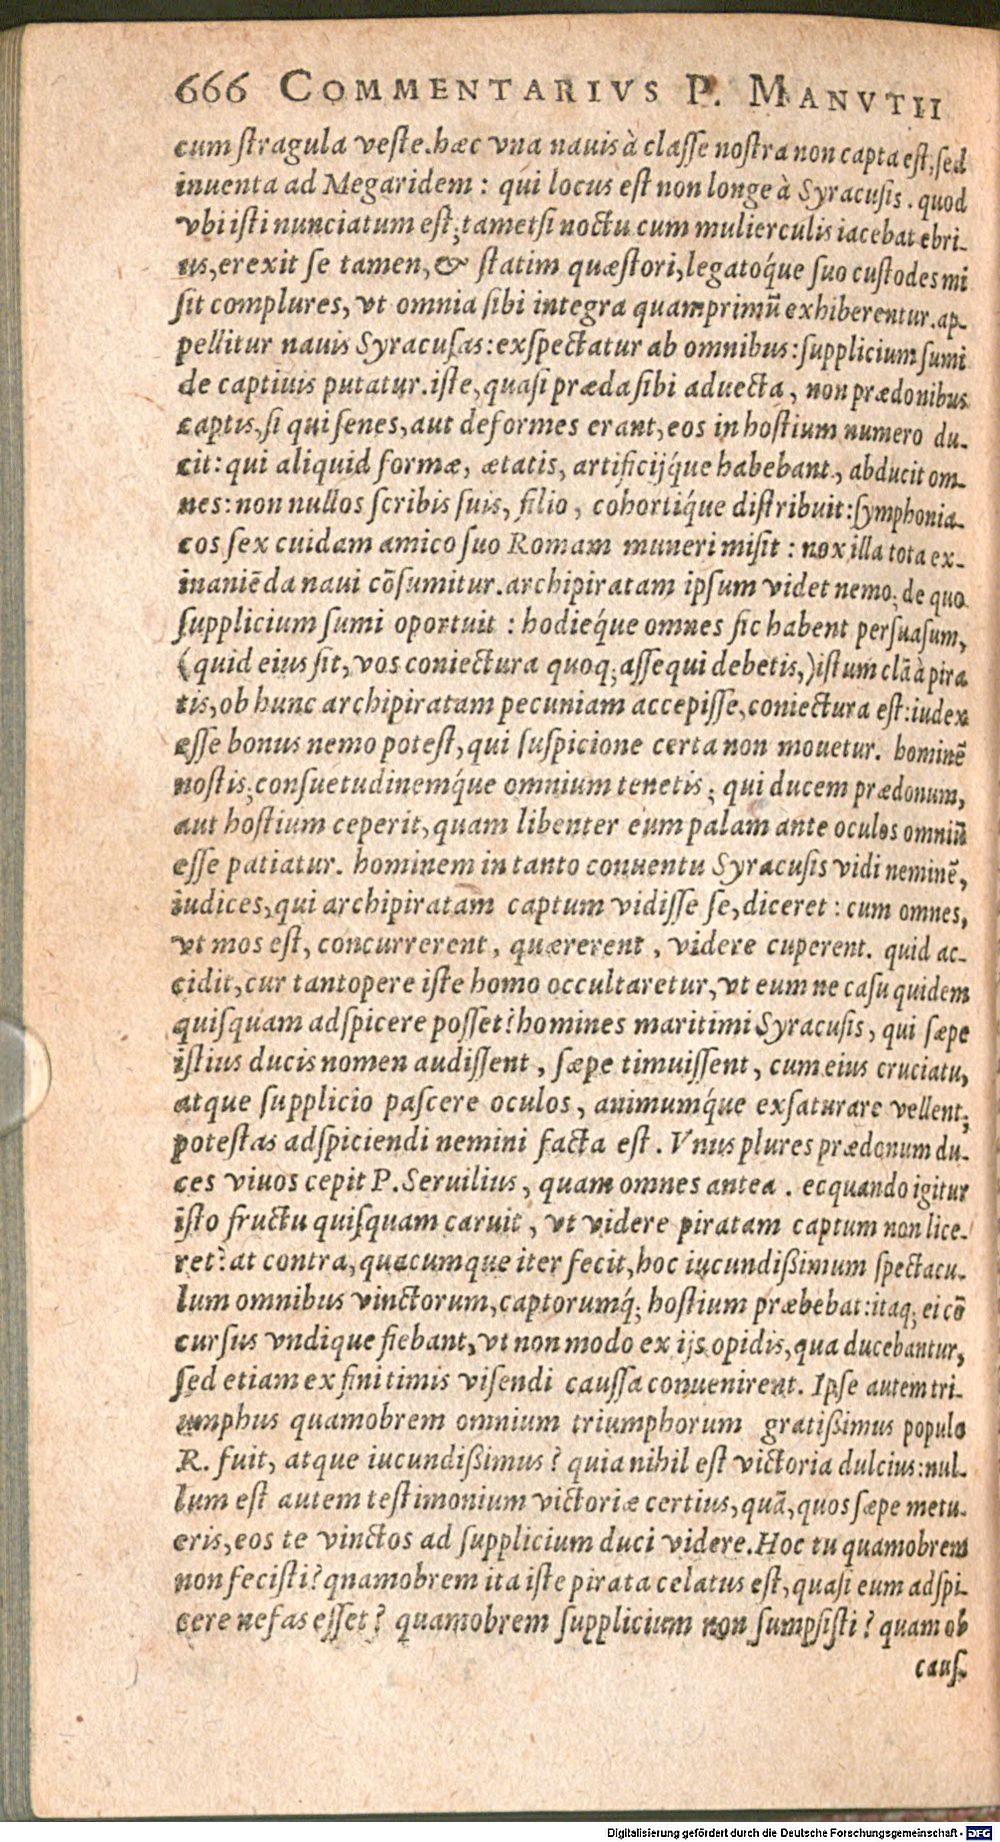 666 COMMENTARIVS P. MANVTII
cum ſtragula veſte. hæc vna nauis à claſſe noſtra non capta eſt, ſed
inuenta ad Megaridem: qui locus eſt non longe à Syracuſis. quod
vbi iſti nunciatum eſt; tametſi noctu cum mulierculis iacebat ebri-
us, erexit ſe tamen, & ſtatim quæſtori, legatoq́ue ſuo cuſtodes mi
ſit complures, vt omnia ſibi integra quamprimũ exhiberentur. ap-
pellitur nauis Syracuſas: exſpectatur ab omnibus: ſupplicium ſumi
de captiuis putatur. iſte, quaſi præda ſibi aduecta, non prædonibus
captis, ſi qui ſenes, aut deformes erant, eos in hoſtium numero du-
cit: qui aliquid formæ, ætatis, artificijq́ue habebant, abducit om-
nes: non nullos ſcribis ſuis, filio, cohortiq́ue diſtribuit: ſymphonia-
cos ſex cuidam amico ſuo Romam muneri miſit: nox illa tota ex-
inaniẽda naui cõſumitur. archipiratam ipſum videt nemo; de quo
ſupplicium ſumi oportuit: hodieq́ue omnes ſic habent perſuaſum,
(quid eius ſit, vos coniectura quoq; aſſequi debetis,) iſtum clã à pira
tis, ob hunc archipiratam pecuniam accepiſſe, coniectura eſt: iudex
eſſe bonus nemo poteſt, qui ſuſpicione certa non mouetur. hominẽ
noſtis; conſuetudinemq́ue omnium tenetis; qui ducem prædonum,
aut hoſtium ceperit, quam libenter eum palam ante oculos omniũ
eſſe patiatur. hominem in tanto conuentu Syracuſis vidi neminẽ,
iudices, qui archipiratam captum vidiſſe ſe, diceret: cum omnes,
vt mos eſt, concurrerent, quærerent, videre cuperent. quid ac-
cidit, cur tantopere iſte homo occultaretur, vt eum ne caſu quidem
quiſquam adſpicere poſſet? homines maritimi Syracuſis, qui ſæpe
iſtius ducis nomen audiſſent, ſæpe timuiſſent, cum eius cruciatu,
atque ſupplicio paſcere oculos, animumq́ue exſaturare vellent;
poteſtas adſpiciendi nemini facta eſt. Vnus plures prædonum du-
ces viuos cepit P. Seruilius, quam omnes antea. ecquando igitur
iſto fructu quiſquam caruit, vt videre piratam captum non lice-
ret? at contra, quacumque iter fecit, hoc iucundißimum ſpectacu-
lum omnibus vinctorum, captorumq́; hoſtium præbebat: itaq; ei cõ
curſus vndique fiebant, vt non modo ex ijs opidis, qua ducebantur,
ſed etiam ex finitimis viſendi cauſſa conuenirent. Ipſe autem tri-
umphus quamobrem omnium triumphorum gratißimus populo
R. fuit, atque iucundißimus? quia nihil eſt victoria dulcius: nul-
lum eſt autem teſtimonium victoriæ certius, quã, quos ſæpe metu-
eris, eos te vinctos ad ſupplicium duci videre. Hoc tu quamobrem
non feciſti? qnamobrem ita iſte pirata celatus eſt, quaſi eum adſpi-
cere nefas eſſet? quamobrem ſupplicium non ſumpſiſti? quam ob
cauſ-
Digitalisierung gefördert durch die Deutsche Forschungsgemeinschaft - DFG